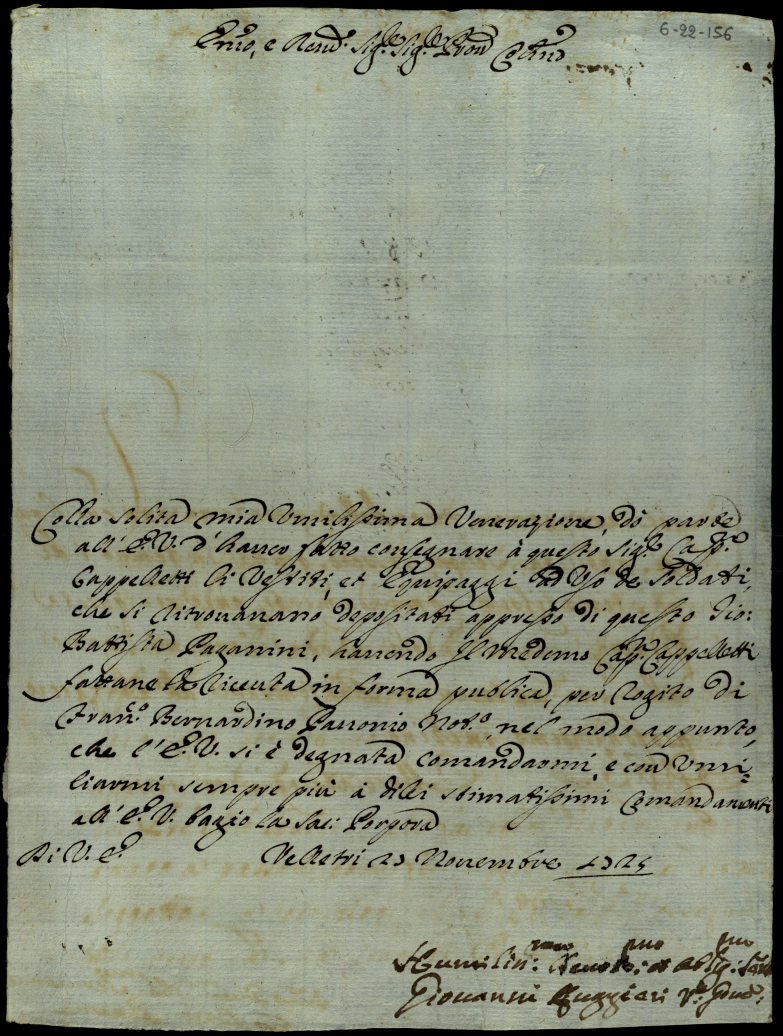 6-22-156
Em̃o, e Rend.º Sig.re Sig.re Pron
Colla solita mia Umilissima Venerazione, dò parte
all'E.V. d'hauer fatto consegnare à questo Sig.re Cap.no
Cappelletti li Vestiti, et Equipaggi ad Uso de Soldati,
che si ritrouauano depositati appresso di questo Gio:
Battista Paganini, hauendo Il medemo Cap.no Cappelletti
fattane la riceuta in forma publica, per rogito di
Fran.co Bernardino Pauonio Not.o, nel modo appunto,
che l'E.V. si è degnata comandarmi, e con Umi=
liarmi sempre più à di lei stimatissimi Comandamenti
all'E.V. bagio la Sac: Porpora
Di V.E.
Velletri 23 Novembre
Humilis: Deuot: et oblig:
Giouanni Ruggieri